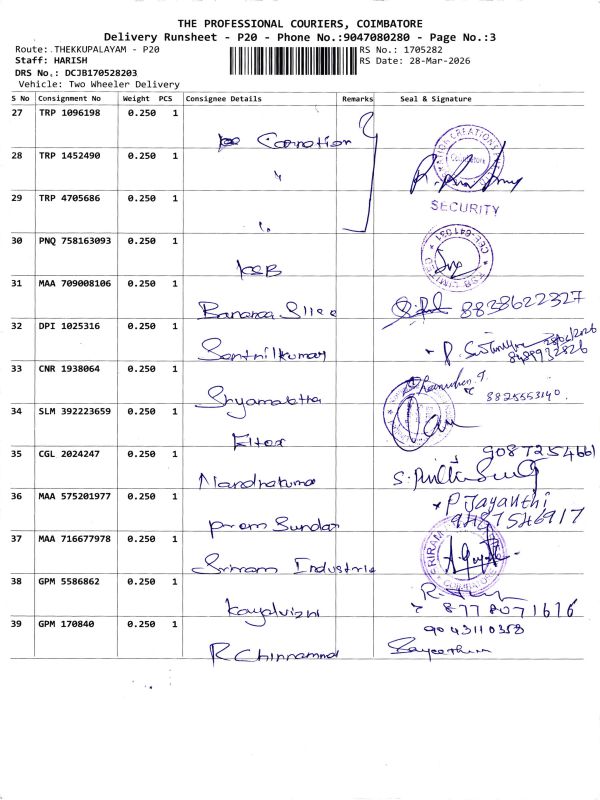 THE PROFESSIONAL COURIERS, COIMBATORE
Delivery Runsheet - P20 - Phone No.:9047080280 - Page No.:3
Route: THEKKUPALAYAM - P20
RS No.: 1705282
Staff: HARISH
RS Date: 28-Mar-2026
DRS No.: DCJB170528203
Vehicle: Two Wheeler Delivery
S No Consignment No Weight PCS Consignee Details Remarks Seal & Signature
27 TRP 1096198 0.250 1 Carnation
28 TRP 1452490 0.250 1 "
29 TRP 4705686 0.250 1 "
SECURITY
30 PNQ 758163093 0.250 1 KSB
KSB LIMITED
31 MAA 709008106 0.250 1 8838622327
32 DPI 1025316 0.250 1 Senthilkumar
33 CNR 1938064 0.250 1 Shyamalatha 8825553140
34 SLM 392223659 0.250 1
35 CGL 2024247 0.250 1 Nandhakuma 9087254661
36 MAA 575201977 0.250 1 Prem Sundar P Jayanthi
9487546917
37 MAA 716677978 0.250 1 Sriram Industrie
38 GPM 5586862 0.250 1 Kayalvizhi 8778071616
39 GPM 170840 0.250 1 R Chinnammal 9043110358